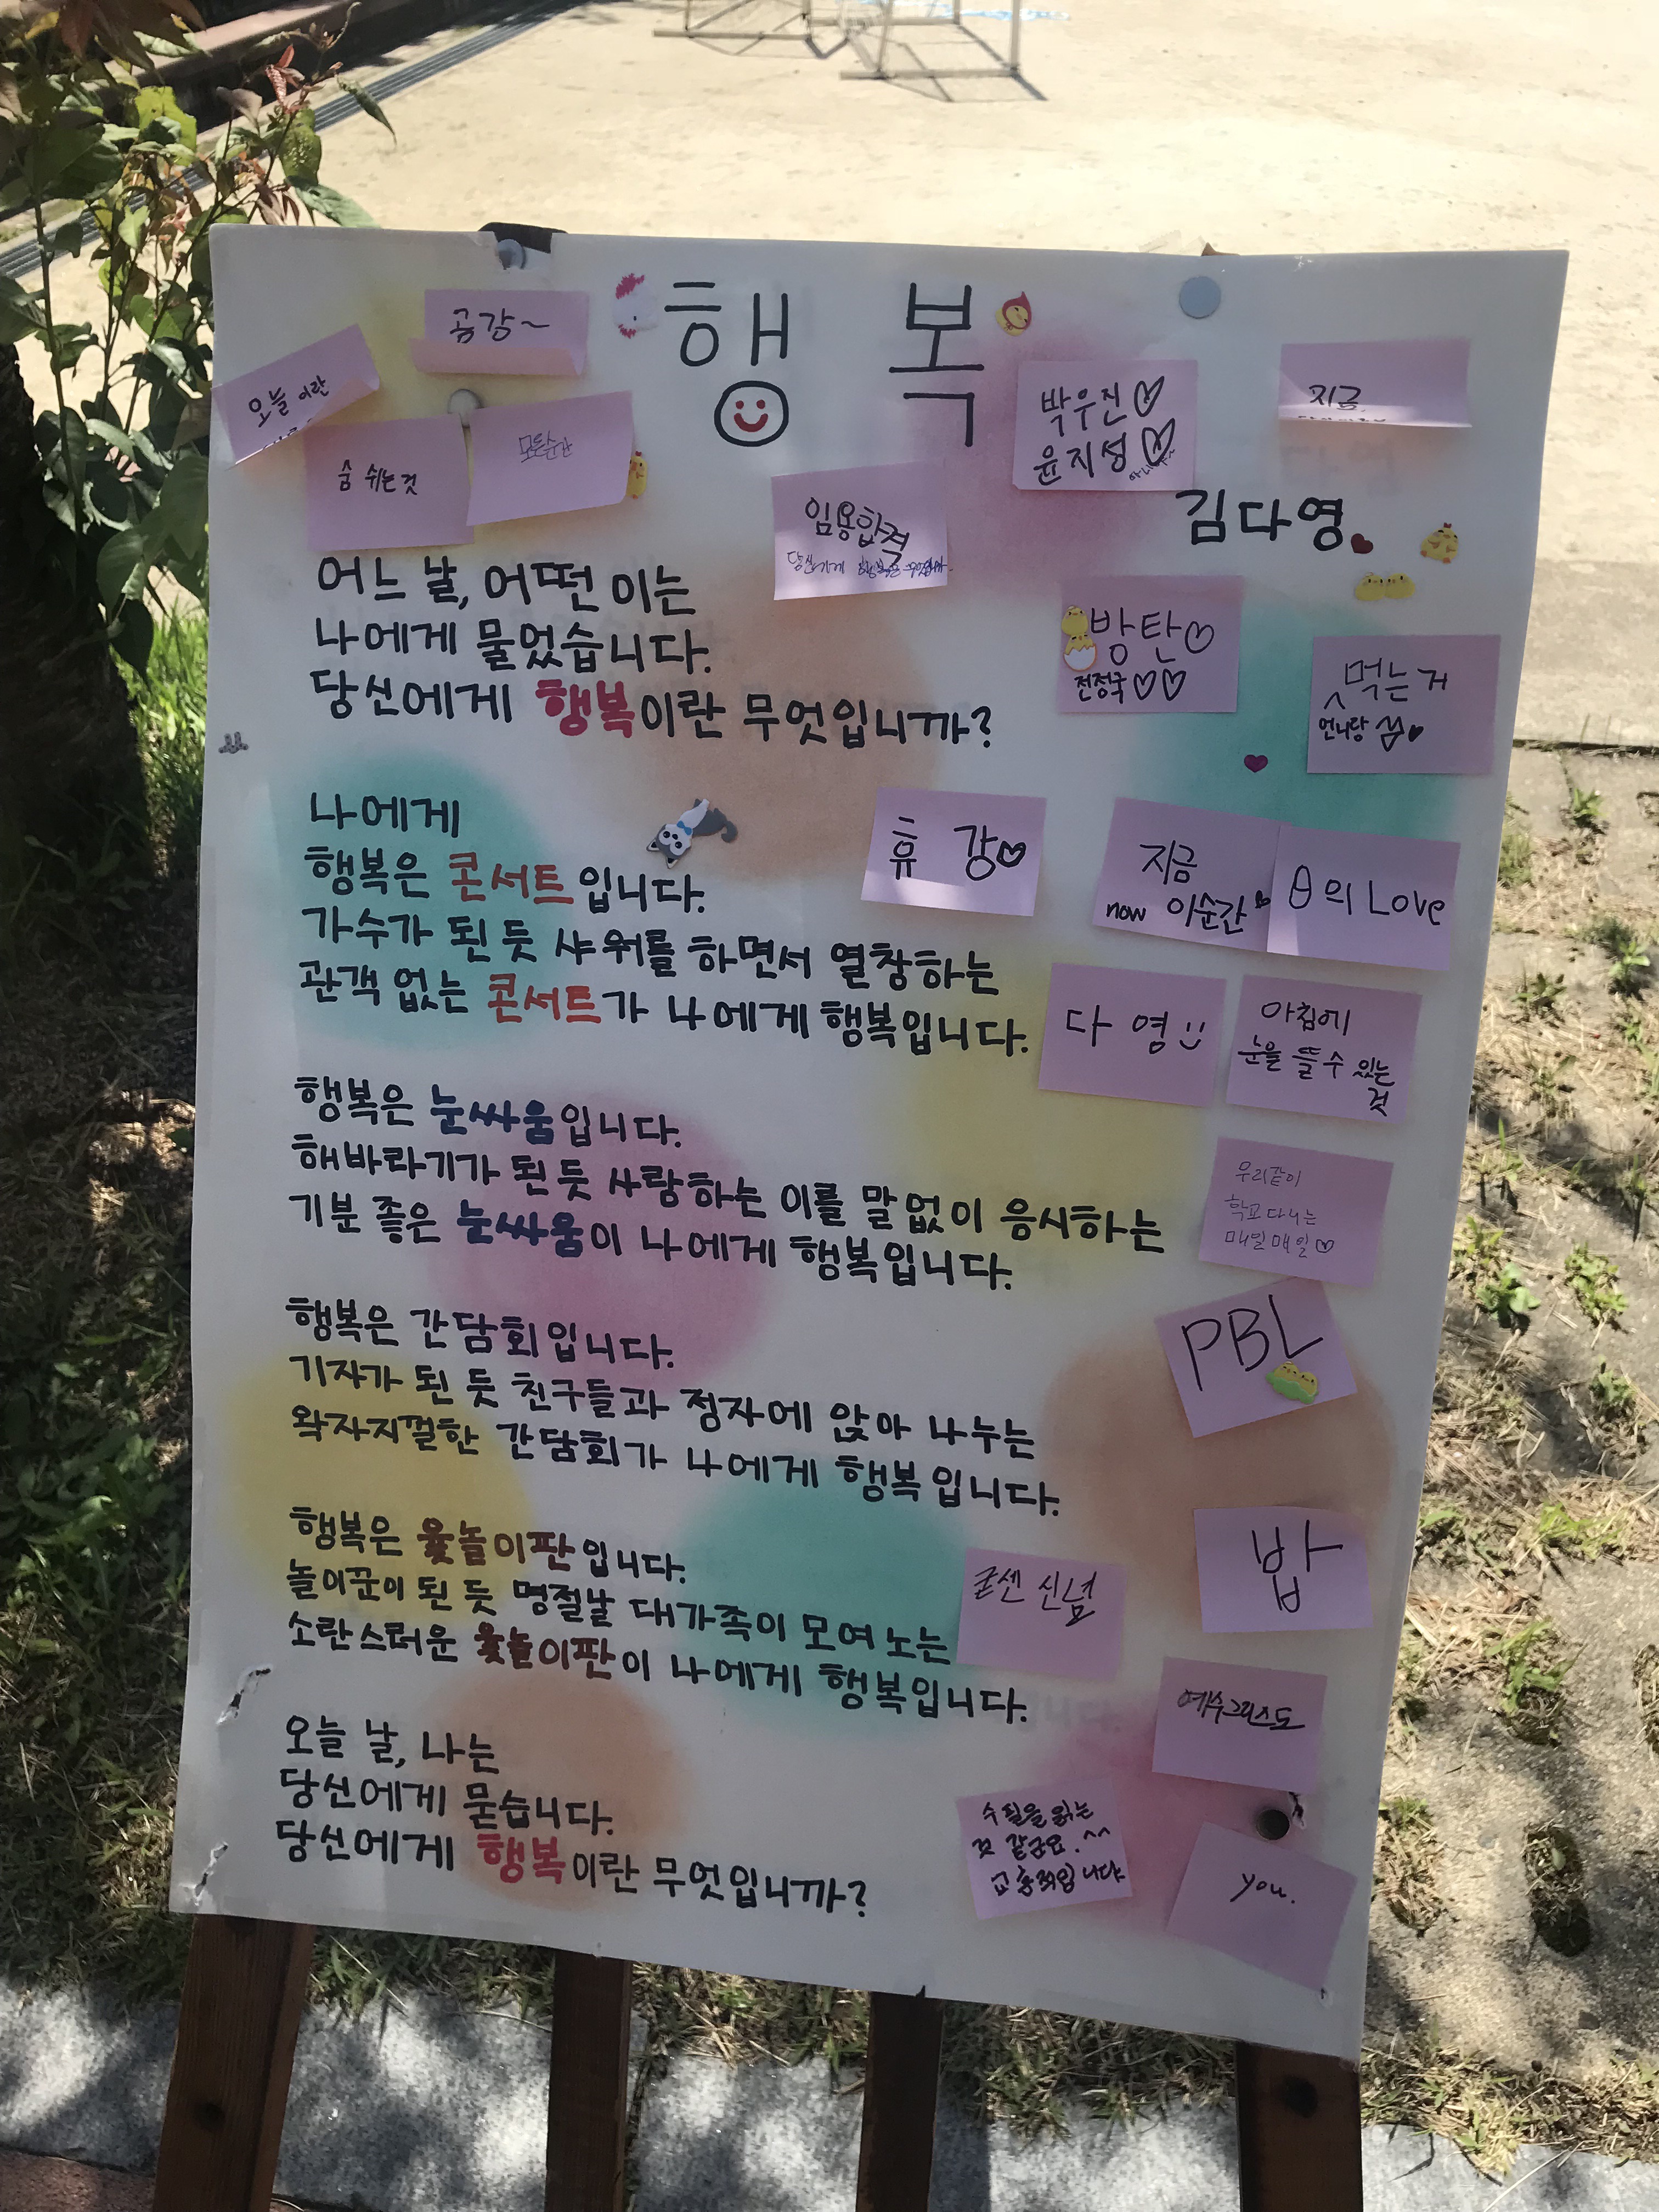 행복
공강~
오늘이란
숨 쉬는 것
모든순간
박우진♡
윤지성♡
지금,
임용합격
당신에게 행복은 무엇입니까.
김다영
어느 날, 어떤 이는
나에게 물었습니다.
당신에게 행복이란 무엇입니까?
방탄♡
전정국♡♡
먹는거
언니랑
나에게
행복은 콘서트입니다.
가수가 된 듯 샤워를 하면서 열창하는
관객 없는 콘서트가 나에게 행복입니다.
휴 강♡
지금
now 이순간
의 Love
다 영
아침에
눈을 뜰 수 있는
것
행복은 눈싸움입니다.
해바라기가 된 듯 사랑하는 이를 말 없이 응시하는
기분 좋은 눈싸움이 나에게 행복입니다.
우리같이
학교 다니는
매일매일♡
PBL
행복은 간담회입니다.
기자가 된 듯 친구들과 정자에 앉아 나누는
왁자지껄한 간담회가 나에게 행복입니다.
행복은 윷놀이판입니다.
놀이꾼이 된 듯 명절날 대가족이 모여 노는
소란스러운 윷놀이판이 나에게 행복입니다.
굳센 신념
밥
예수그리스도
오늘 날, 나는
당신에게 묻습니다.
당신에게 행복이란 무엇입니까?
수필을 읽는
것 같군요.^^
교훈적입니다
you.